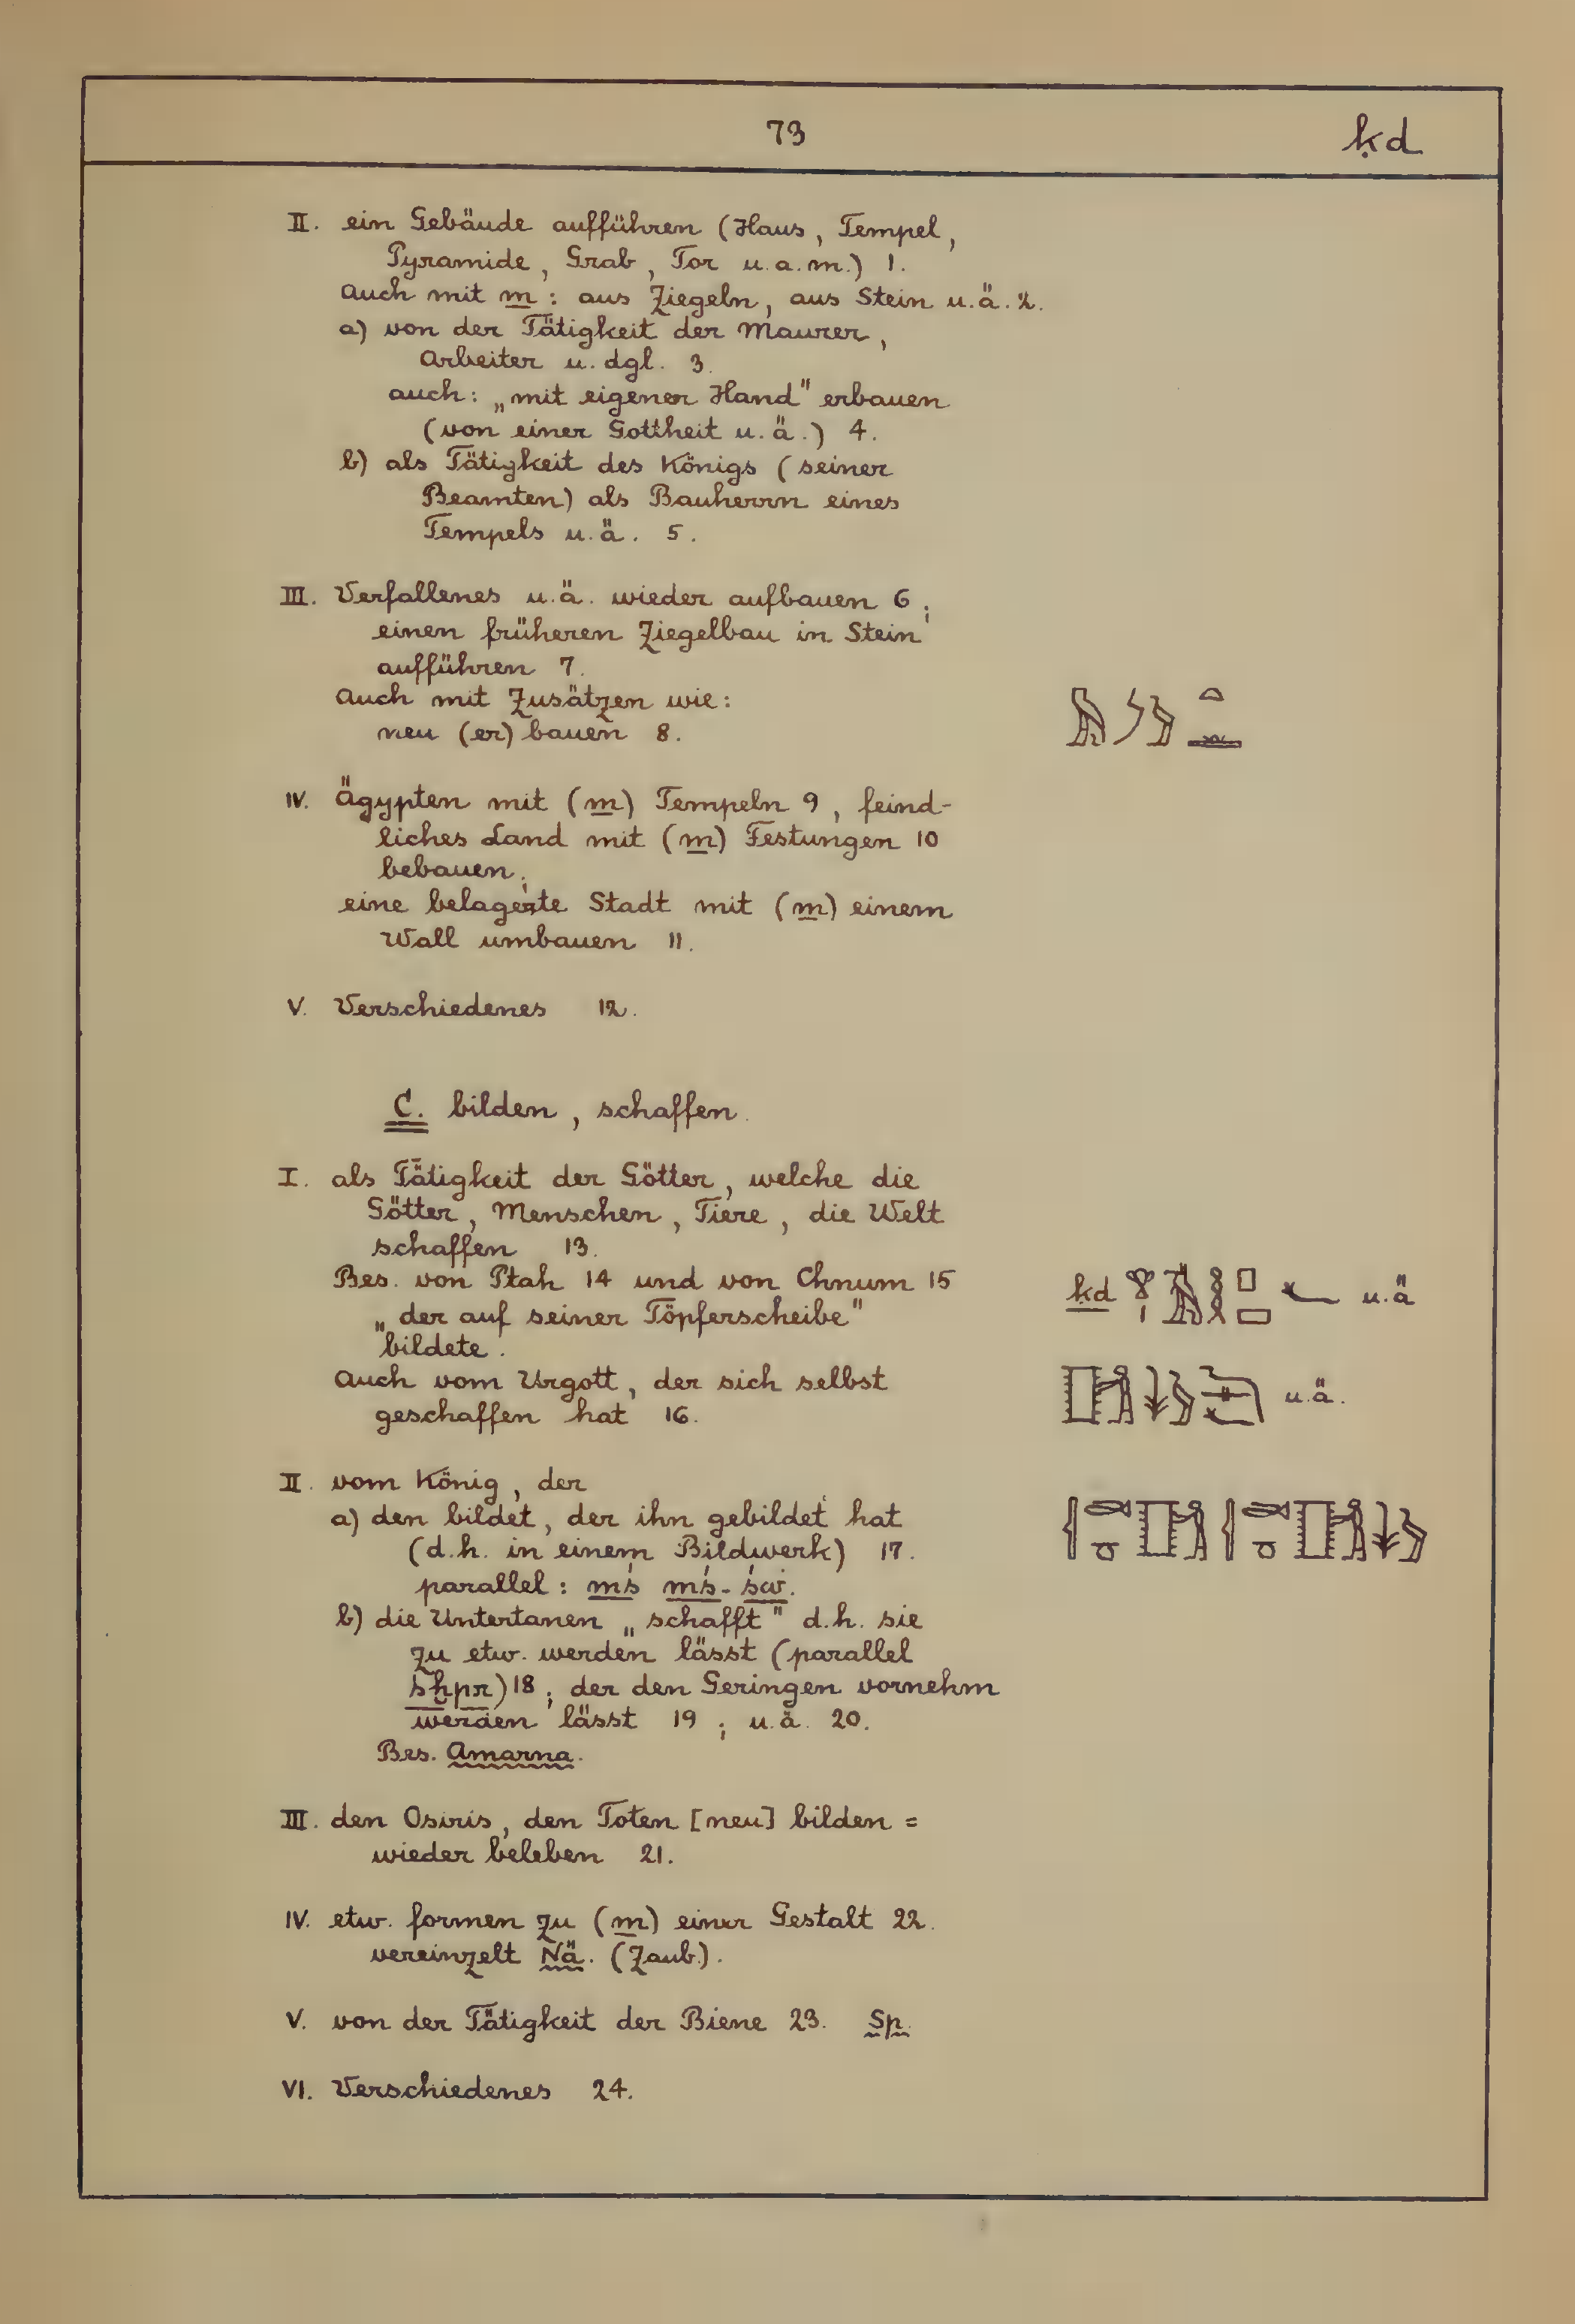 73
ḳd
II. ein Gebäude aufführen (Haus, Tempel,
Pyramide, Grab, Tor u.a.m.) 1.
Auch mit m: aus Ziegeln, aus Stein u.ä. 2.
a) von der Tätigkeit der Maurer,
Arbeiter u. dgl. 3.
auch: „mit eigener Hand" erbauen
(von einer Gottheit u.ä.) 4.
b) als Tätigkeit des Königs (seiner
Beamten) als Bauherrn eines
Tempels u.ä. 5.
III. Verfallenes u.ä. wieder aufbauen 6;
einen früheren Ziegelbau in Stein
aufführen 7.
Auch mit Zusätzen wie:
neu (er)bauen 8.
IV. Ägypten mit (m) Tempeln 9, feind-
liches Land mit (m) Festungen 10
bebauen;
eine belagerte Stadt mit (m) einem
Wall umbauen 11.
V. Verschiedenes 12.
C. bilden, schaffen.
I. als Tätigkeit der Götter, welche die
Götter, Menschen, Tiere, die Welt
schaffen 13.
Bes. von Ptah 14 und von Chnum 15
ḳd u.ä
„der auf seiner Töpferscheibe"
bildete.
Auch vom Urgott, der sich selbst
u.ä.
geschaffen hat 16.
II. vom König, der
a) den bildet, der ihn gebildet hat
(d.h. in einem Bildwerk) 17.
parallel: mś mś-św.
b) die Untertanen „schafft" d.h. sie
zu etw. werden lässt (parallel
śḫpr) 18; der den Geringen vornehm
werden lässt 19; u.ä. 20.
Bes. Amarna.
III. den Osiris, den Toten [neu] bilden =
wieder beleben 21.
IV. etw. formen zu (m) einer Gestalt 22.
vereinzelt Nä. (Zaub.).
V. von der Tätigkeit der Biene 23. Sp.
VI. Verschiedenes 24.